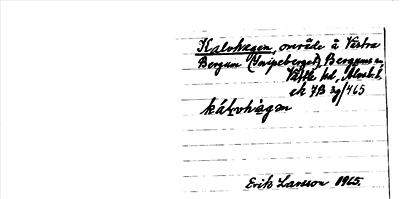 Kalvhagen, område å Västra
Bergum (Snipeberget) Bergums sn,
Vättle hd, Älvsb. l.
ek 7B 3g/465
kálvhàgen
Erik Larsson 1965.